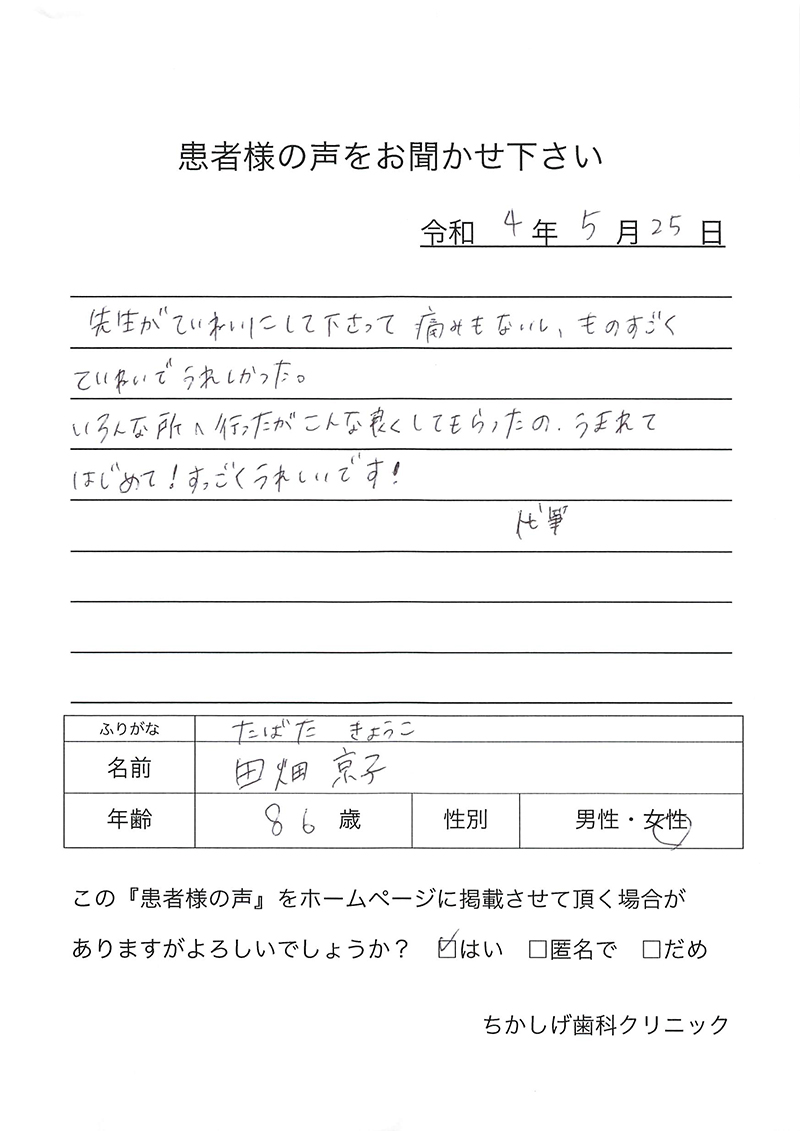 患者様の声をお聞かせ下さい
令和 4 年 5 月 25 日
先生がていねいにして下さって 痛みもないし、ものすごく
ていねいでうれしかった。
いろんな所へ行ったがこんな良くしてもらったの、うまれて
はじめて!すっごくうれしいです!
代筆
ふりがな たばた きょうこ
名前 田畑 京子
年齢 86 歳 性別 男性・女性
この『患者様の声』をホームページに掲載させて頂く場合が
ありますがよろしいでしょうか? ☑はい □匿名で □だめ
ちかしげ歯科クリニック